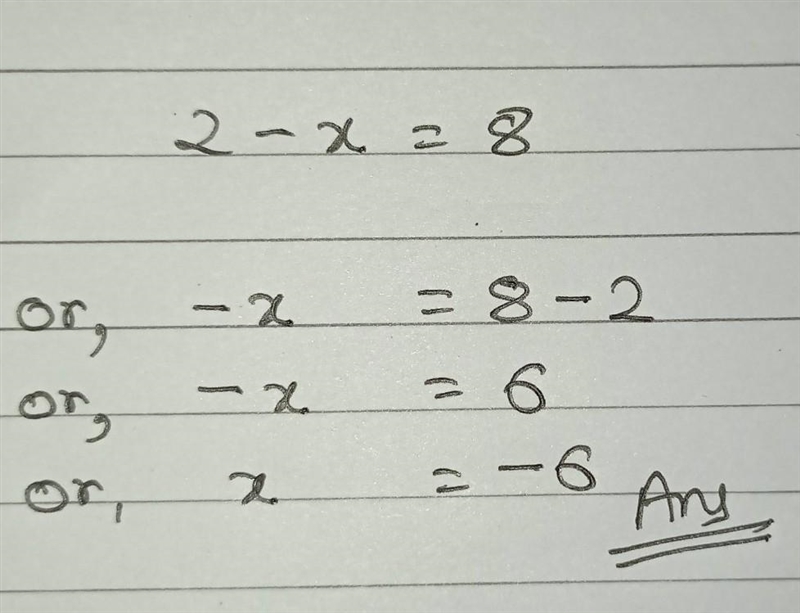 2 - x = 8
or, - x = 8 - 2
or, - x = 6
or, x = - 6 Ans